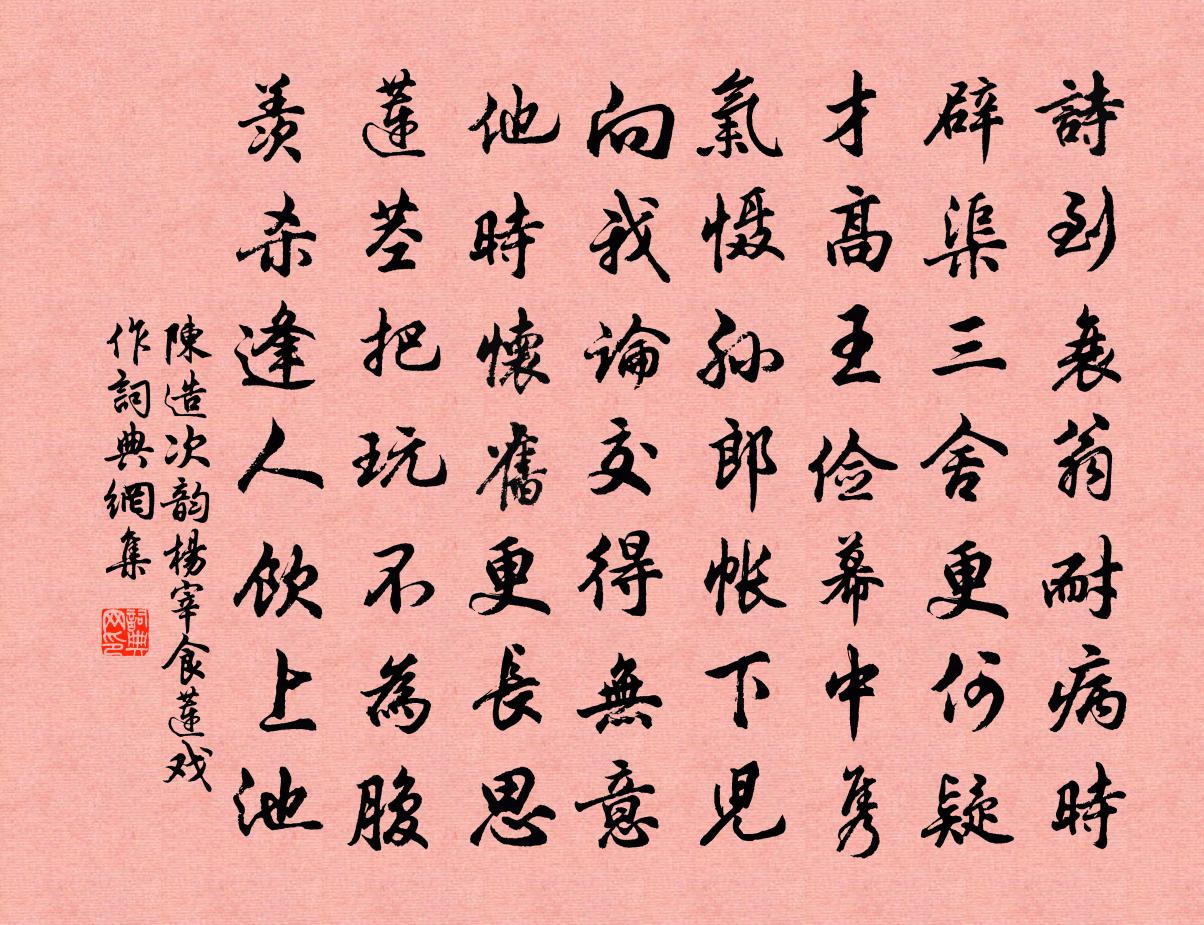 詩到衰翁耐病時
辟渠三舍更何疑
才高王俭幕中隽
氣慑孙郎帐下児
向我論交得無意
他時懷舊更長思
蓮莖把玩不為腹
羨杀逢人飲上池
陳造次韵楊宰食蓮戏
作詞典網集
詞典网印